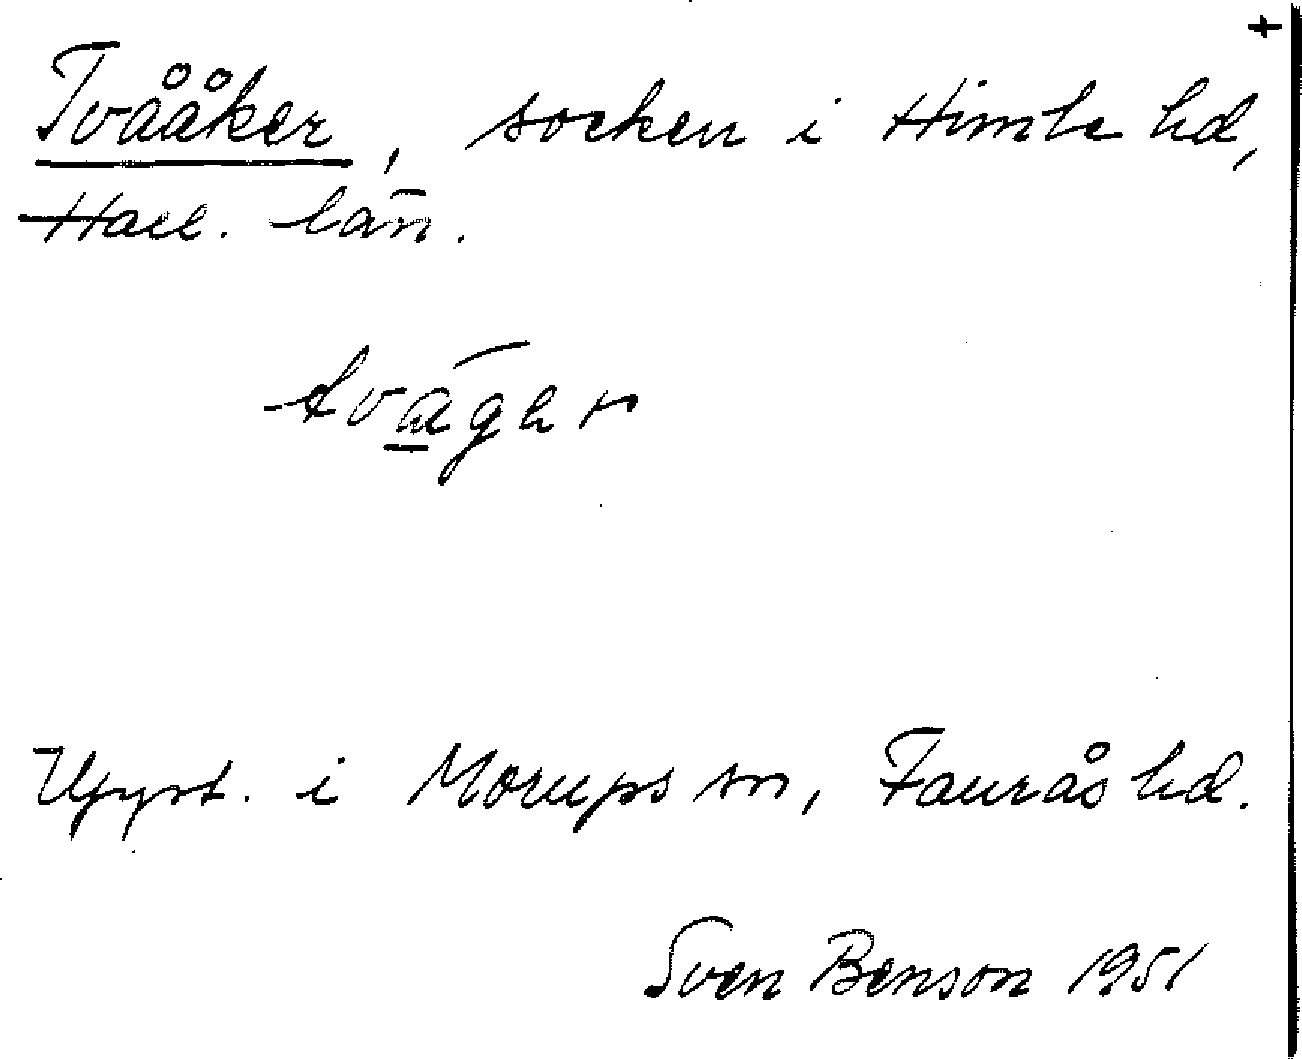 +
Tvååker, socken i Himle hd,
Hall. län.
Uppt. i Morups sn, Faurås hd.
Sven Benson 1951